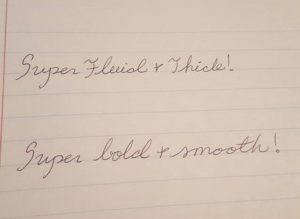 Super Fluid + Thick!
Super bold + smooth!